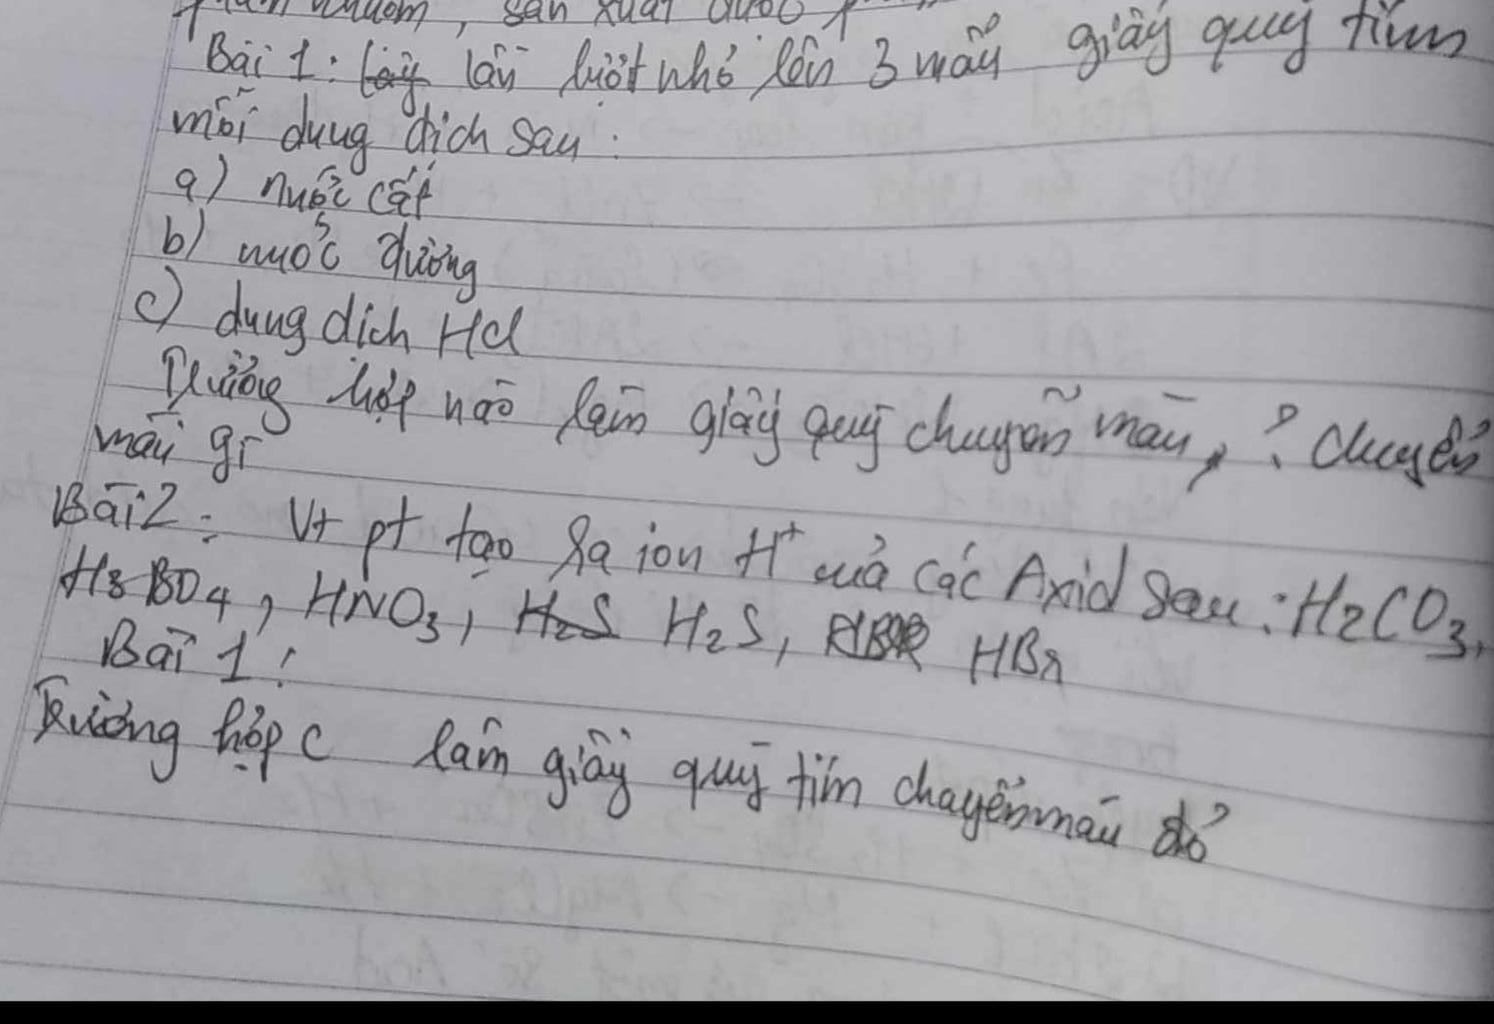 nhuộm, sản xuất
Bài 1: lần lượt nhỏ lên 3 mẫu giấy quỳ tím
mỗi dung dịch sau:
a) nước cất
b) nước đường
c) dung dịch HCl
Trường hợp nào làm giấy quỳ chuyển màu, ? chuyển
màu gì
Bài 2: Vt pt tạo ra ion H+ của các Axid sau: H2CO3,
H3BO4, HNO3, H2S H2S, HBR HBr
Bài 1:
Trường hợp c làm giấy quỳ tím chuyển màu đỏ